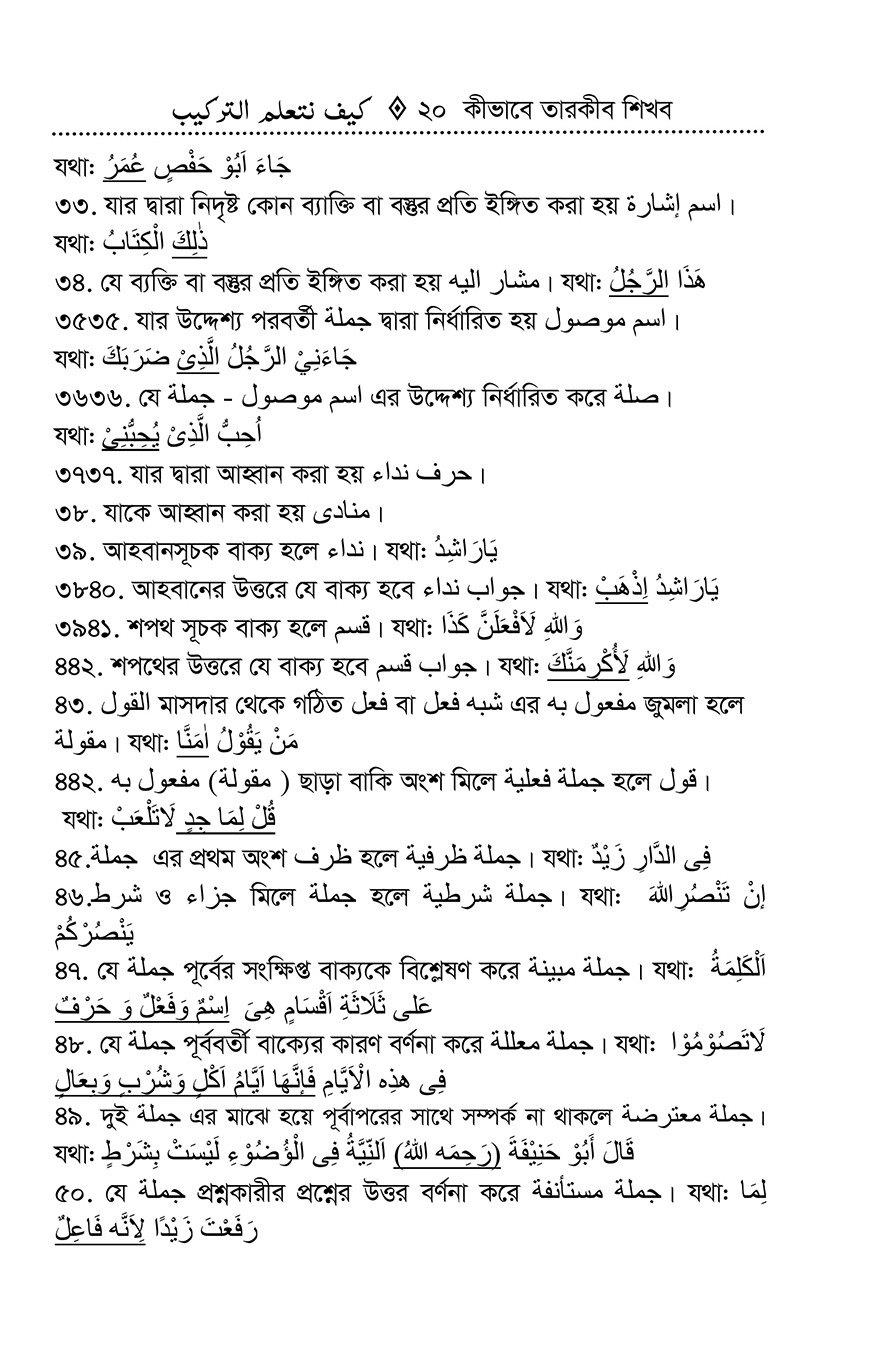 كيف نتعلم التركيب ◈ ২০ কীভাবে তারকীব শিখব
যথা: جَاءَ اَبُوْ حَفْصٍ عُمَرُ
৩৩. যার দ্বারা নিদৃষ্ট কোন ব্যাক্তি বা বস্তুর প্রতি ইঙ্গিত করা হয় اسم إشارة।
যথা: ذٰلِكَ الْكِتَابُ
৩৪. যে ব্যক্তি বা বস্তুর প্রতি ইঙ্গিত করা হয় مشار اليه। যথা: هَذَا الرَّجُلُ
৩৫৩৫. যার উদ্দেশ্য পরবর্তী جملة দ্বারা নির্ধারিত হয় اسم موصول।
যথা: جَاءَنِيْ الرَّجُلُ الَّذِىْ ضَرَبَكَ
৩৬৩৬. যে جملة - اسم موصول এর উদ্দেশ্য নির্ধারিত করে صلة।
যথা: اُحِبُّ الَّذِىْ يُحِبُّنِيْ
৩৭৩৭. যার দ্বারা আহ্বান করা হয় حرف نداء।
৩৮. যাকে আহ্বান করা হয় منادى।
৩৯. আহবানসূচক বাক্য হলে نداء। যথা: يَارَاشِدُ
৩৮৪০. আহবানের উত্তরে যে বাক্য হবে جواب نداء। যথা: يَارَاشِدُ اِذْهَبْ
৩৯৪১. শপথ সূচক বাক্য হলে قسم। যথা: وَاللهِ لَاَفْعَلَنَّ كَذَا
৪৪২. শপথের উত্তরে যে বাক্য হবে جواب قسم। যথা: وَاللهِ لَأُكْرِمَنَّكَ
৪৩. القول মাসদার থেকে গঠিত فعل বা شبه فعل এর مفعول به জুমলা হলে
مقولة। যথা: مَنْ يَقُوْلُ اٰمَنَّا
৪৪২. مفعول به (مقولة ) ছাড়া বাকি অংশ মিলে جملة فعلية হলে قول।
যথা: قُلْ لِمَا جِدٍ لَاتَلْعَبْ
৪৫.جملة এর প্রথম অংশ ظرف হলে جملة ظرفية। যথা: فِى الدَّارِ زَيْدٌ
৪৬.شرط ও جزاء মিলে جملة হলে جملة شرطية। যথা: إنْ تَنْصُرِاللهَ
يَنْصُرْكُمْ
৪৭. যে جملة পূর্বের সংক্ষিপ্ত বাক্যকে বিশ্লেষণ করে جملة مبينة। যথা: اَلْكَلِمَةُ
عَلى ثَلَاثَةِ اَقْسَامٍ هِىَ اِسْمٌ وَفَعْلٌ وَ حَرْفٌ
৪৮. যে جملة পূর্ববর্তী বাক্যের কারণ বর্ণনা করে جملة معللة। যথা: لَاتَصُوْمُوْا
فِى هذِه الْاَيَّامِ فَاِنَّهَا اَيَّامُ اَكْلٍ وَشُرْبٍ وَبِعَالٍ
৪৯. দুই جملة এর মাঝে হয়ে পূর্বাপরের সাথে সম্পর্ক না থাকলে جملة معترضة।
যথা: قَالَ أَبُوْ حَنِيْفَةَ (رَحِمَه اللهُ) اَلنِّيَّةُ فِى الْوُضُوْءِ لَيْسَتْ بِشَرْطٍ
৫০. যে جملة প্রশ্নকারীর প্রশ্নের উত্তর বর্ণনা করে جملة مستأنفة। যথা: لِمَا
رَفَعْتَ زَيْدًا لِاَنَّه فَاعِلٌ